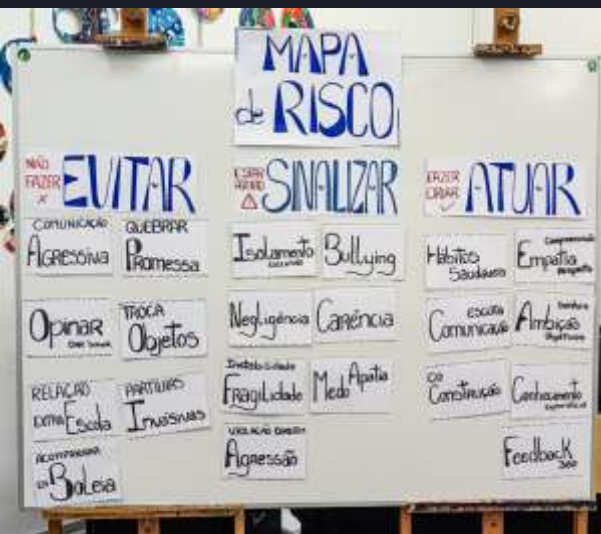 MAPA
de RISCO
NÃO
FAZER
x
EVITAR
COMUNICAÇÃO
AGRESSIVA
QUEBRAR
PROMESSA
OPINAR
TROCA
OBJETOS
RELAÇÃO
EXTRA ESCOLA
PARTILHAS
INVASIVAS
ACOMPANHAR
BOLEIA
ESTAR
ATENTO
SINALIZAR
Isolamento
Bullying
Negligência
Carência
Instabilidade
FRAGILIDADE
Medo
Apatia
VIOLAÇÃO DIREITOS
Agressão
FAZER
CRIAR
ATUAR
Hábitos
Saudáveis
Compreensão
Empatia
Respeito
ESCUTA
Comunicação
Ambição
CO
Construção
Conhecimento
Feedback
360